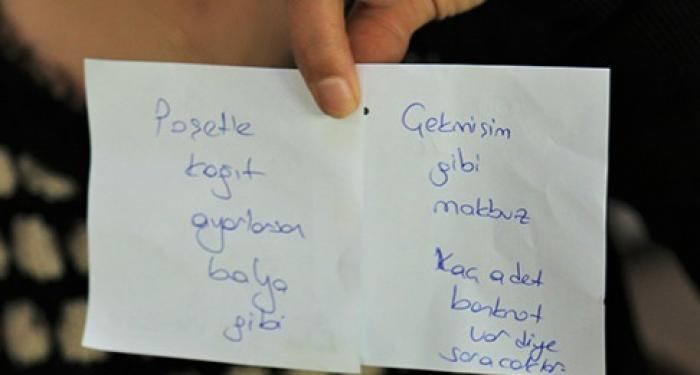 Poşetle
kağıt
ayarlarsan
balya
gibi
Çekmişim
gibi
makbuz
Kaç adet
banknot
var diye
soracaklar